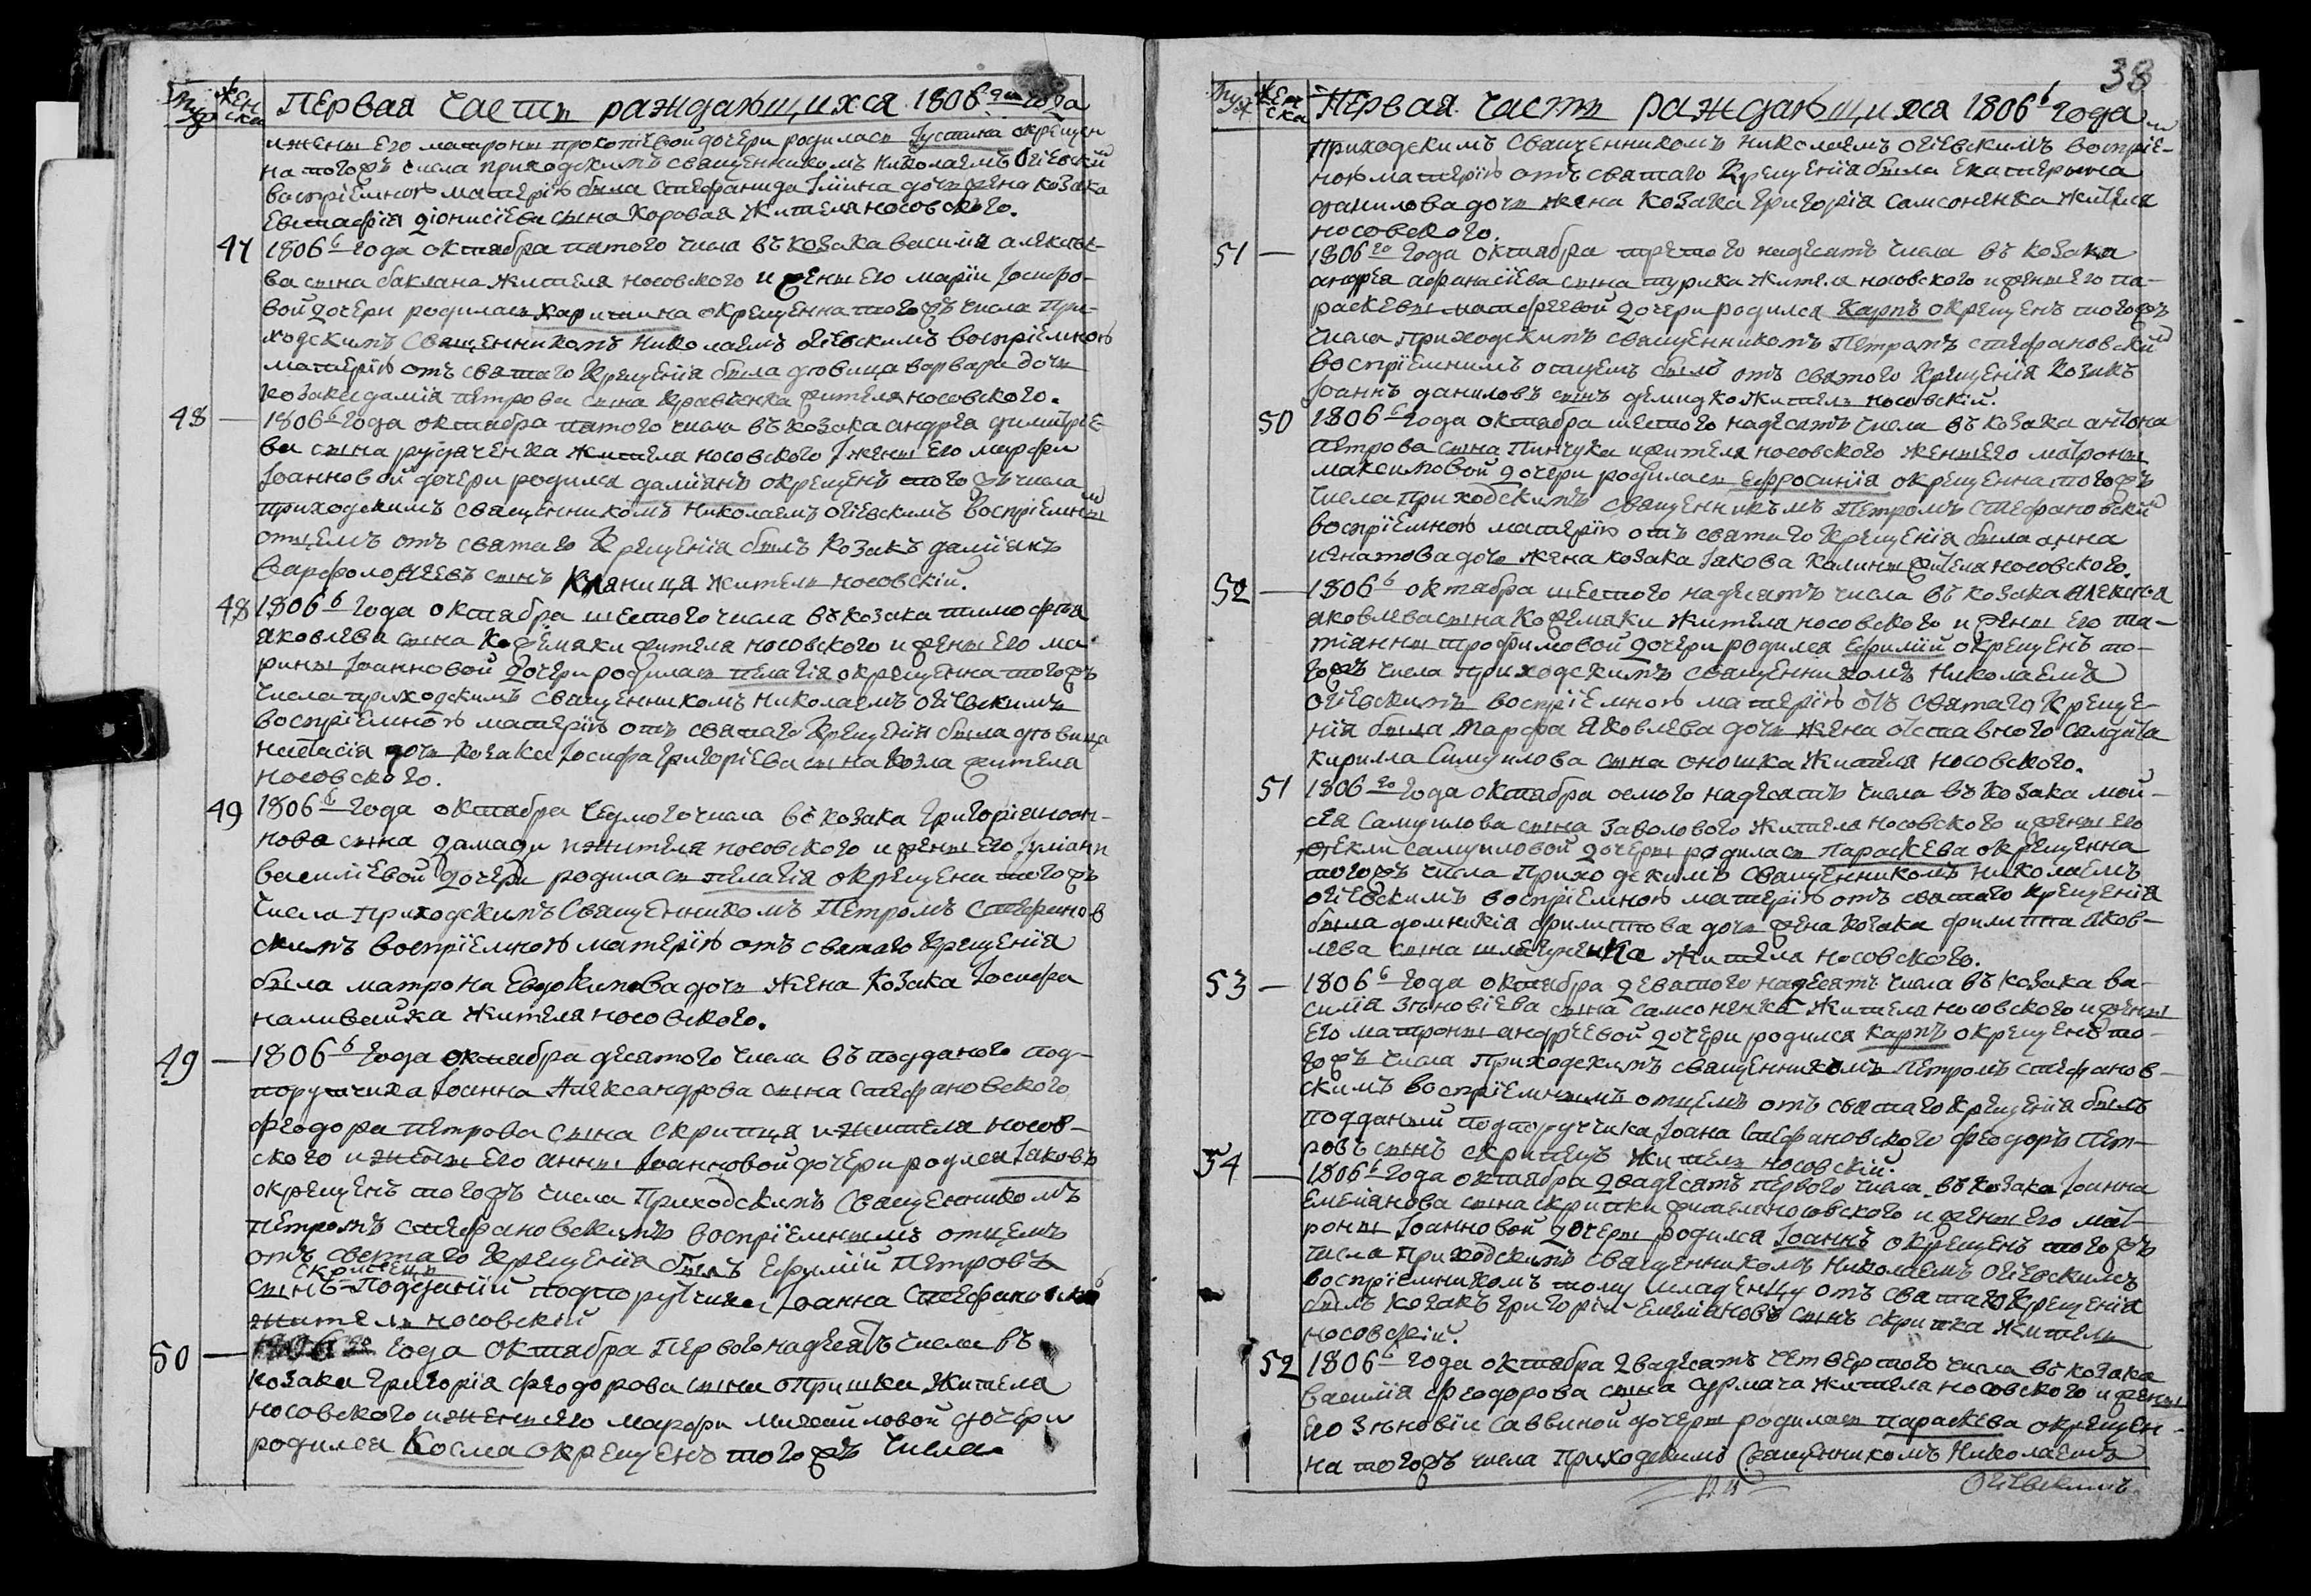 муж женска Первая часть раждающихся 1806го года
и жены его матроны прокопіевой дочери родилась Іустина окрещен
на тогожъ числа приходскимъ священникомъ Николаемъ Огіевский
воспріемною матерію была Стефанида Іліина дочь жена козака
Евстафія діонисіева сына Коровая жителя носовского.
47 1806г года октября пятого числа въ козака василія алексѣе-
ва сына баклана жителя носовского и жены его маріи Іосифо-
вой дочери родилась харитина окрещенна тогожъ числа при-
ходскимъ Священникомъ Николаемъ огіевскимъ воспріемною
матерію отъ святаго Крещенія была дѣвица варвара дочь
козака даміа петрова сына кравченка жителя носовского.
48 — 1806г года октября пятого числа въ козака андрея димитріе-
ва сына рудченка жителя носовского и жены его марфы
Іоанновой дочери родился даміянъ окрещенъ тогожъ числа
приходскимъ священникомъ Николаемъ огіевскимъ воспріемным
отцемъ отъ святаго Крещенія былъ козакъ даміянъ
Варфоломеевъ сынъ Кляница житель носовскій.
48 1806г года октября шестого числа въ козака тимофея
яковлева сына Кожемяки жителя носовского и жены его ма-
рины Іоанновой дочери родилась пелагія окрещенна тогожъ
числа приходскимъ священникомъ николаемъ огіевскимъ
воспріемною матерію отъ святаго крещенія была дѣвица
настасія дочь козака Іосифа григоріева сына Козла жителя
носовского.
49 1806г года октября седмого числа въ козака григорія иоан-
нова сына дамади жителя носовского и жены его Іуліани
василіевой дочери родилась пелагія окрещена тогожъ
числа приходскимъ Священникомъ Петромъ Стефанов
скимъ воспріемною матерію отъ святаго крещенія
была матрона Евдокимова дочь жена козака Іосифа
наливайка жителя носовского.
49 — 1806г года октября десятого числа въ подданого под-
поручика Іоанна Александрова сына Стефановского
феодора петрова сына скрипця жителя носов-
ского и жены его анны Іоанновой дочери родился Іаковъ
окрещенъ тогожъ числа Приходскимъ Священникомъ
петромъ стефановскимъ воспріемнымъ отцемъ
отъ святаго крещенія былъ Ефимій Петровъ
скрипецъ
сынъ подданій подпоручика Іоанна Стефановско
житель носовскій
50 — 1806го года октября Первого надесять числа въ
козака григорія феодорова сына опришка жителя
носовского и жены его марфы михайловой дочери
родился Косма окрещенъ тогожъ числа
38
муж женска Первая часть раждающихся 1806г года
приходскимъ Священникомъ николаемъ огіевскимъ воспріем-
ною матерію отъ святаго Крещенія была Екатерина
данилова дочь жена козака григорія Самсоненка жителя
носовского.
51 — 1806го года октября третого надесять числа въ козака
андрея афанасіева сына турика жителя носовского и жены его па-
раскевы матфеевой дочери родился Карпъ окрещенъ тогожъ
числа приходскимъ священникомъ Петромъ стефановский
воспріемнимъ отцемъ былъ отъ святого Крещенія козакъ
Іоаннъ даниловъ сынъ демидко житель носовскій.
50 1806г года октября шестого надесять числа въ козака антона
петрова сына Пинчука жителя носовского жены его матроны
максимовой дочери родилась ефросинія окрещенна тогожъ
числа приходскимъ священникомъ Петромъ Стефановский
воспріемною матерію отъ святаго крещенія была анна
игнатова дочь жена козака Іакова Калины жителя носовского.
52 — 1806г октября шестого надесять числа въ козака алексѣя
яковлева сына кожемяки жителя носовского и жены его та-
тіанны трофимовой дочери родился ефимій окрещенъ то-
гожъ числа приходскимъ священникомъ Николаемъ
огіевскимъ воспріемною матерію отъ святаго Креще-
нія была Марфа Яковлева дочь жена отставного салдата
кирилла Самуилова сына оношка жителя носовского.
51 1806го года октября осмого надесять числа въ козака мой-
сея Самуилова сына заволового жителя носовского и жены его
феклы самуиловой дочеры родилась Параскева окрещенна
тогожъ числа приходскимъ священникомъ николаемъ
огіевскимъ воспріемною матерію отъ святаго крещенія
была домникія филиппова дочь жена козака филиппа яков-
лева сына шевчуненка жителя носовского.
53 — 1806г года октября девятого надесять числа въ козака ва-
силія зѣновіева сына самсоненка жителя носовского и жены
его матроны андреевой дочери родился Карпъ окрещенъ то-
гожъ числа приходскимъ священникомъ Петромъ стефанов-
скимъ воспріемнымъ отцемъ отъ святаго крещенія былъ
подданый подпоручика Іоана Стефановского феодоръ пет-
ровъ сынъ скрипецъ житель носовскій.
54 — 1806г года октября двадесять первого числа въ козака Іоанна
емеліанова сына скрипки жителя носовского и жены его мат-
роны Іоанновой дочеры родился Іоаннъ окрещенъ тогожъ
числа приходскимъ священникомъ николаемъ огіевскимъ
воспріемникомъ тому младенцу отъ святаго крещенія
былъ козакъ григорій емеліановъ сынъ скрипка житель
носовскій.
52 1806г года октября двадесять четвертого числа въ козака
василія феодорова сына сурмача жителя носовского и жены
его зѣновіи саввиной дочеры родилась параскева окрещен-
на тогожъ числа приходскимъ Священникомъ Николаемъ
Огіевскимъ